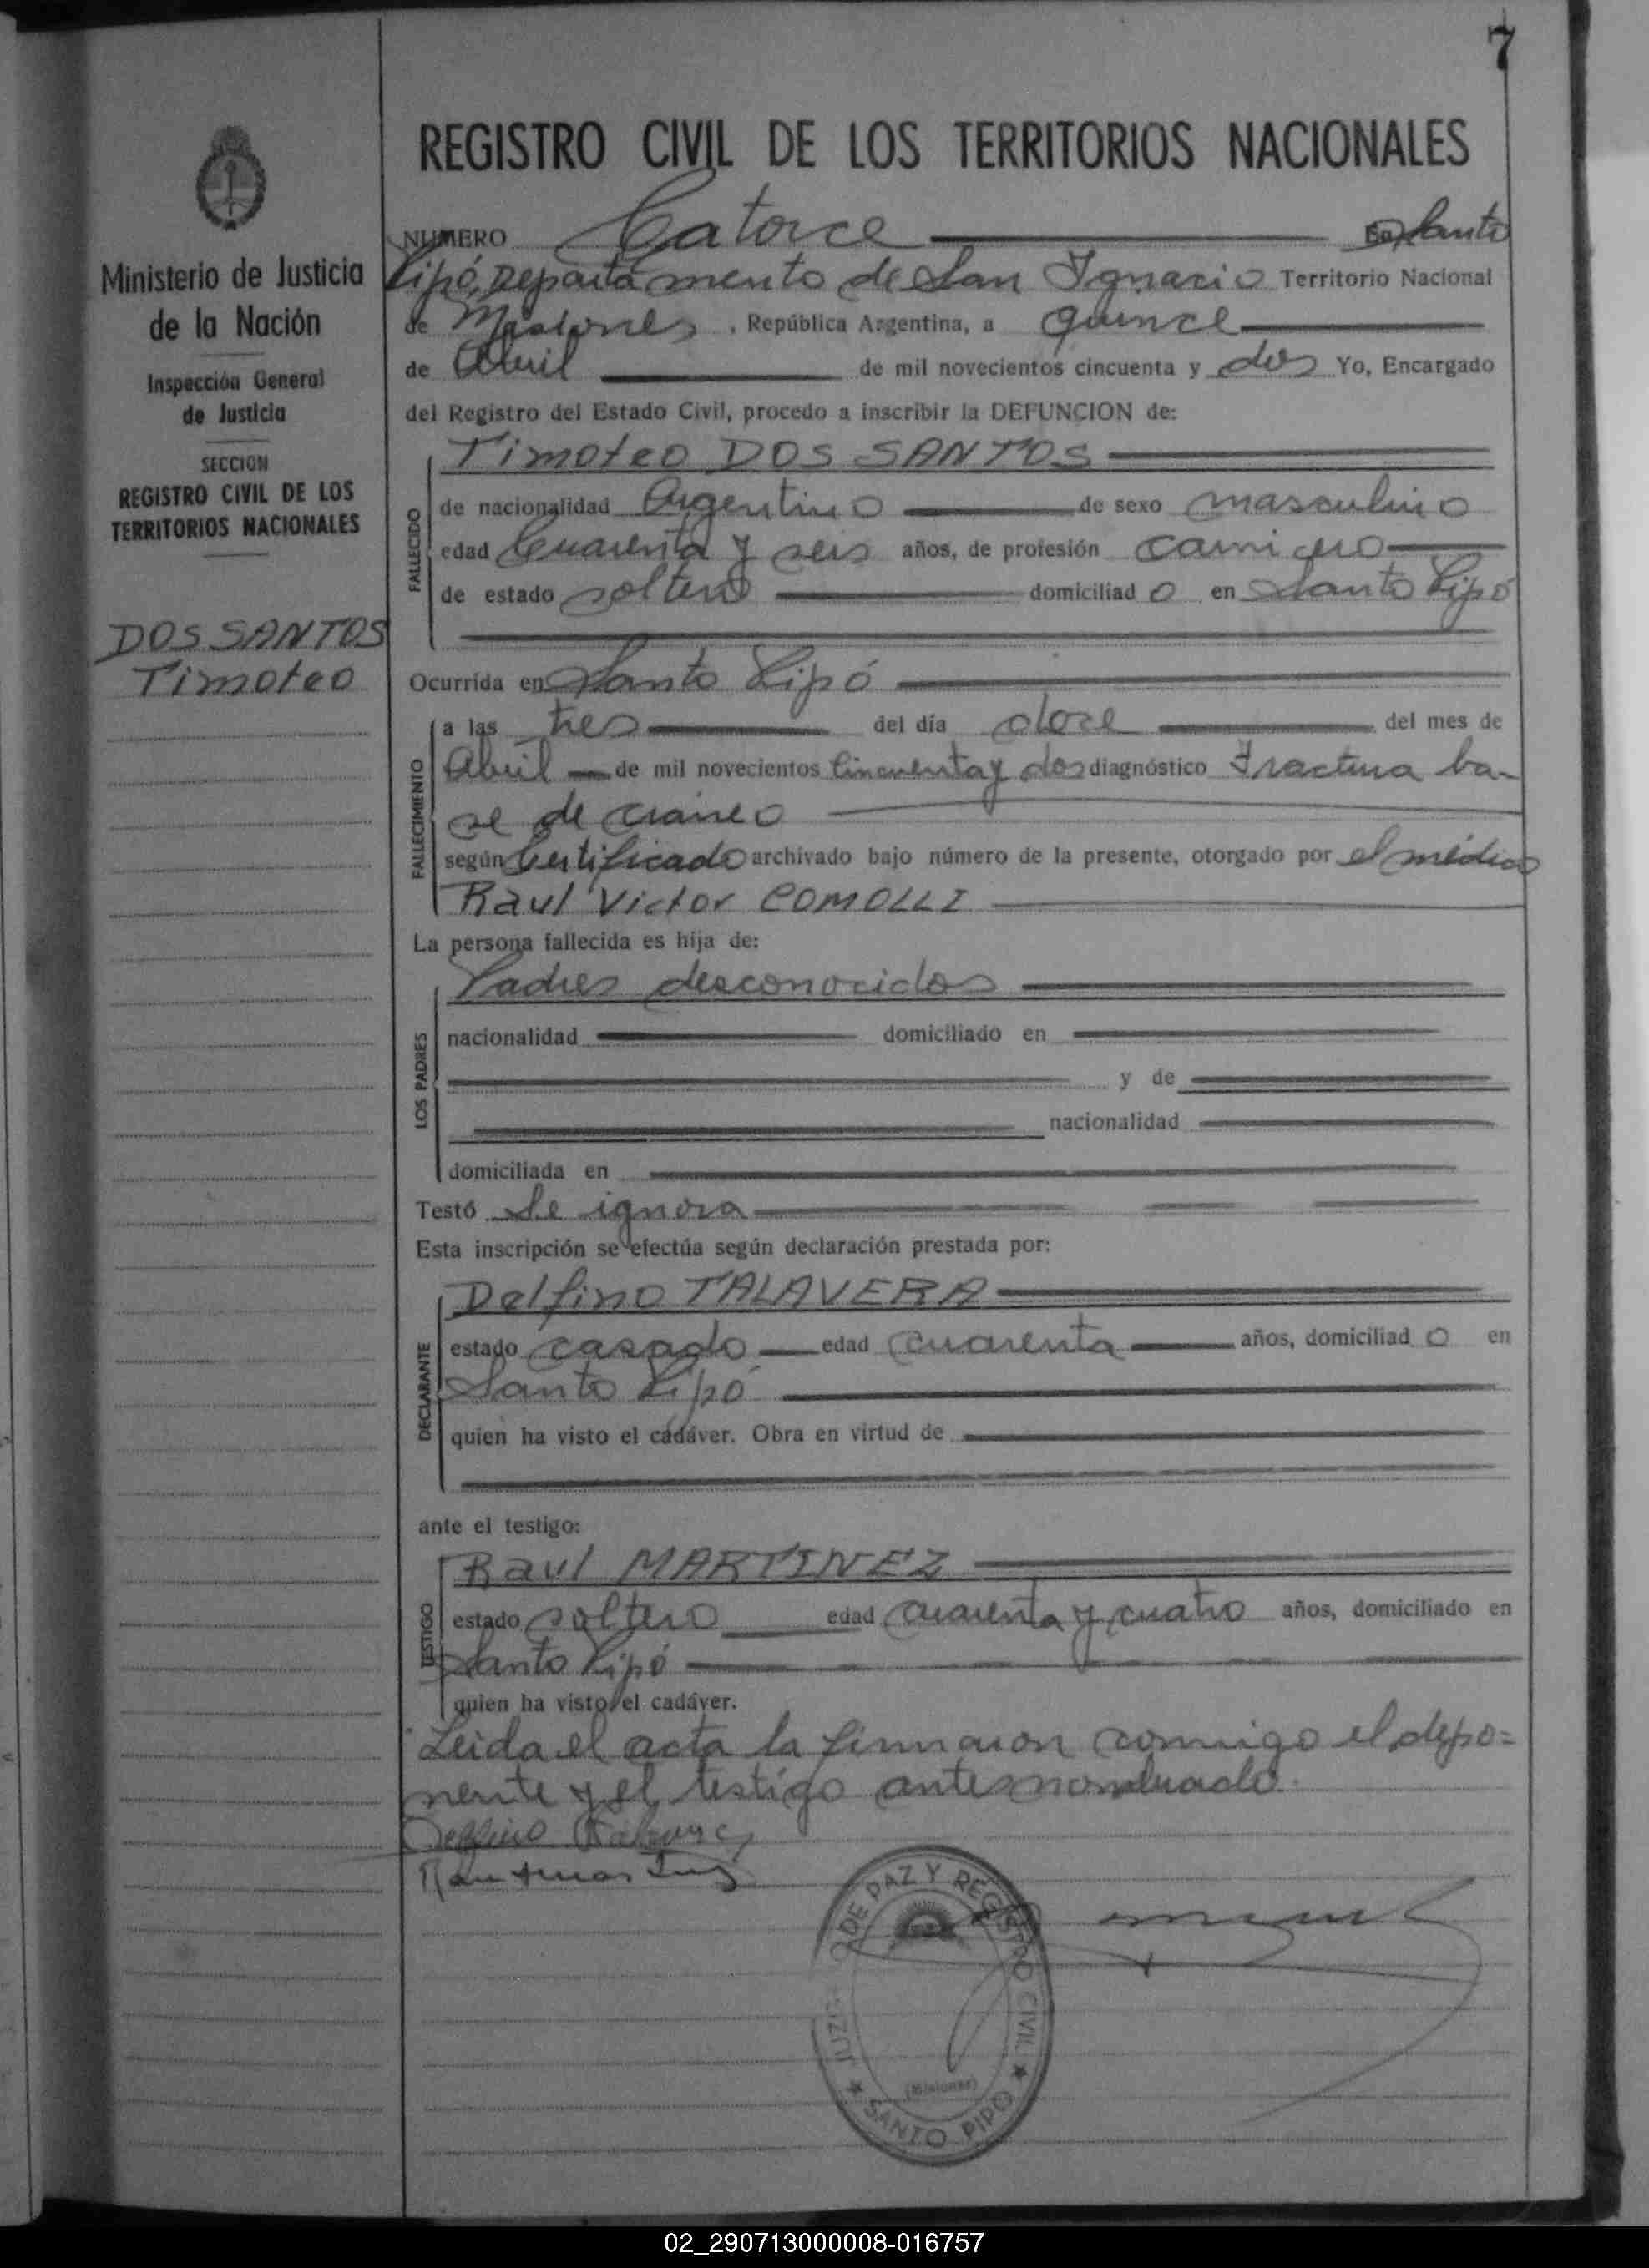 7
REGISTRO CIVIL DE LOS TERRITORIOS NACIONALES
Ministerio de Justicia
de la Nación
Inspección General
de Justicia
SECCION
REGISTRO CIVIL DE LOS
TERRITORIOS NACIONALES
DOS SANTOS
Timoteo
NUMERO Catorce En Santo
Pipó, Departamento de San Ignacio Territorio Nacional
de Misiones, República Argentina, a quince
de Abril de mil novecientos cincuenta y dos Yo, Encargado
del Registro del Estado Civil, procedo a inscribir la DEFUNCION de:
FALLECIDO
Timoteo DOS SANTOS
de nacionalidad Argentino de sexo masculino
edad Cuarenta y seis años, de profesión carnicero
de estado soltero domiciliad o en Santo Pipó
Ocurrida en Santo Pipó
FALLECIMIENTO
a las tres del día doce del mes de
Abril de mil novecientos Cincuenta y dos diagnóstico Fractura ba-
se de cráneo
según Certificado archivado bajo número de la presente, otorgado por el médico
Raul Victor COMOLLI
La persona fallecida es hija de:
LOS PADRES
Padres desconocidos
nacionalidad domiciliado en
y de
nacionalidad
domiciliada en
Testó Se ignora
Esta inscripción se efectúa según declaración prestada por:
DECLARANTE
Delfino TALAVERA
estado casado edad cuarenta años, domiciliad o en
Santo Pipó
quien ha visto el cadáver. Obra en virtud de
ante el testigo:
TESTIGO
Raul MARTINEZ
estado soltero edad cuarenta y cuatro años, domiciliado en
Santo Pipó
quien ha visto el cadáver.
Leida el acta la firmaron conmigo el depo=
nente y el testigo antesnombrado.
Delfino
JUZGADO DE PAZ Y REGISTRO CIVIL
(Misiones)
★ SANTO PIPO ★
02_290713000008-016757